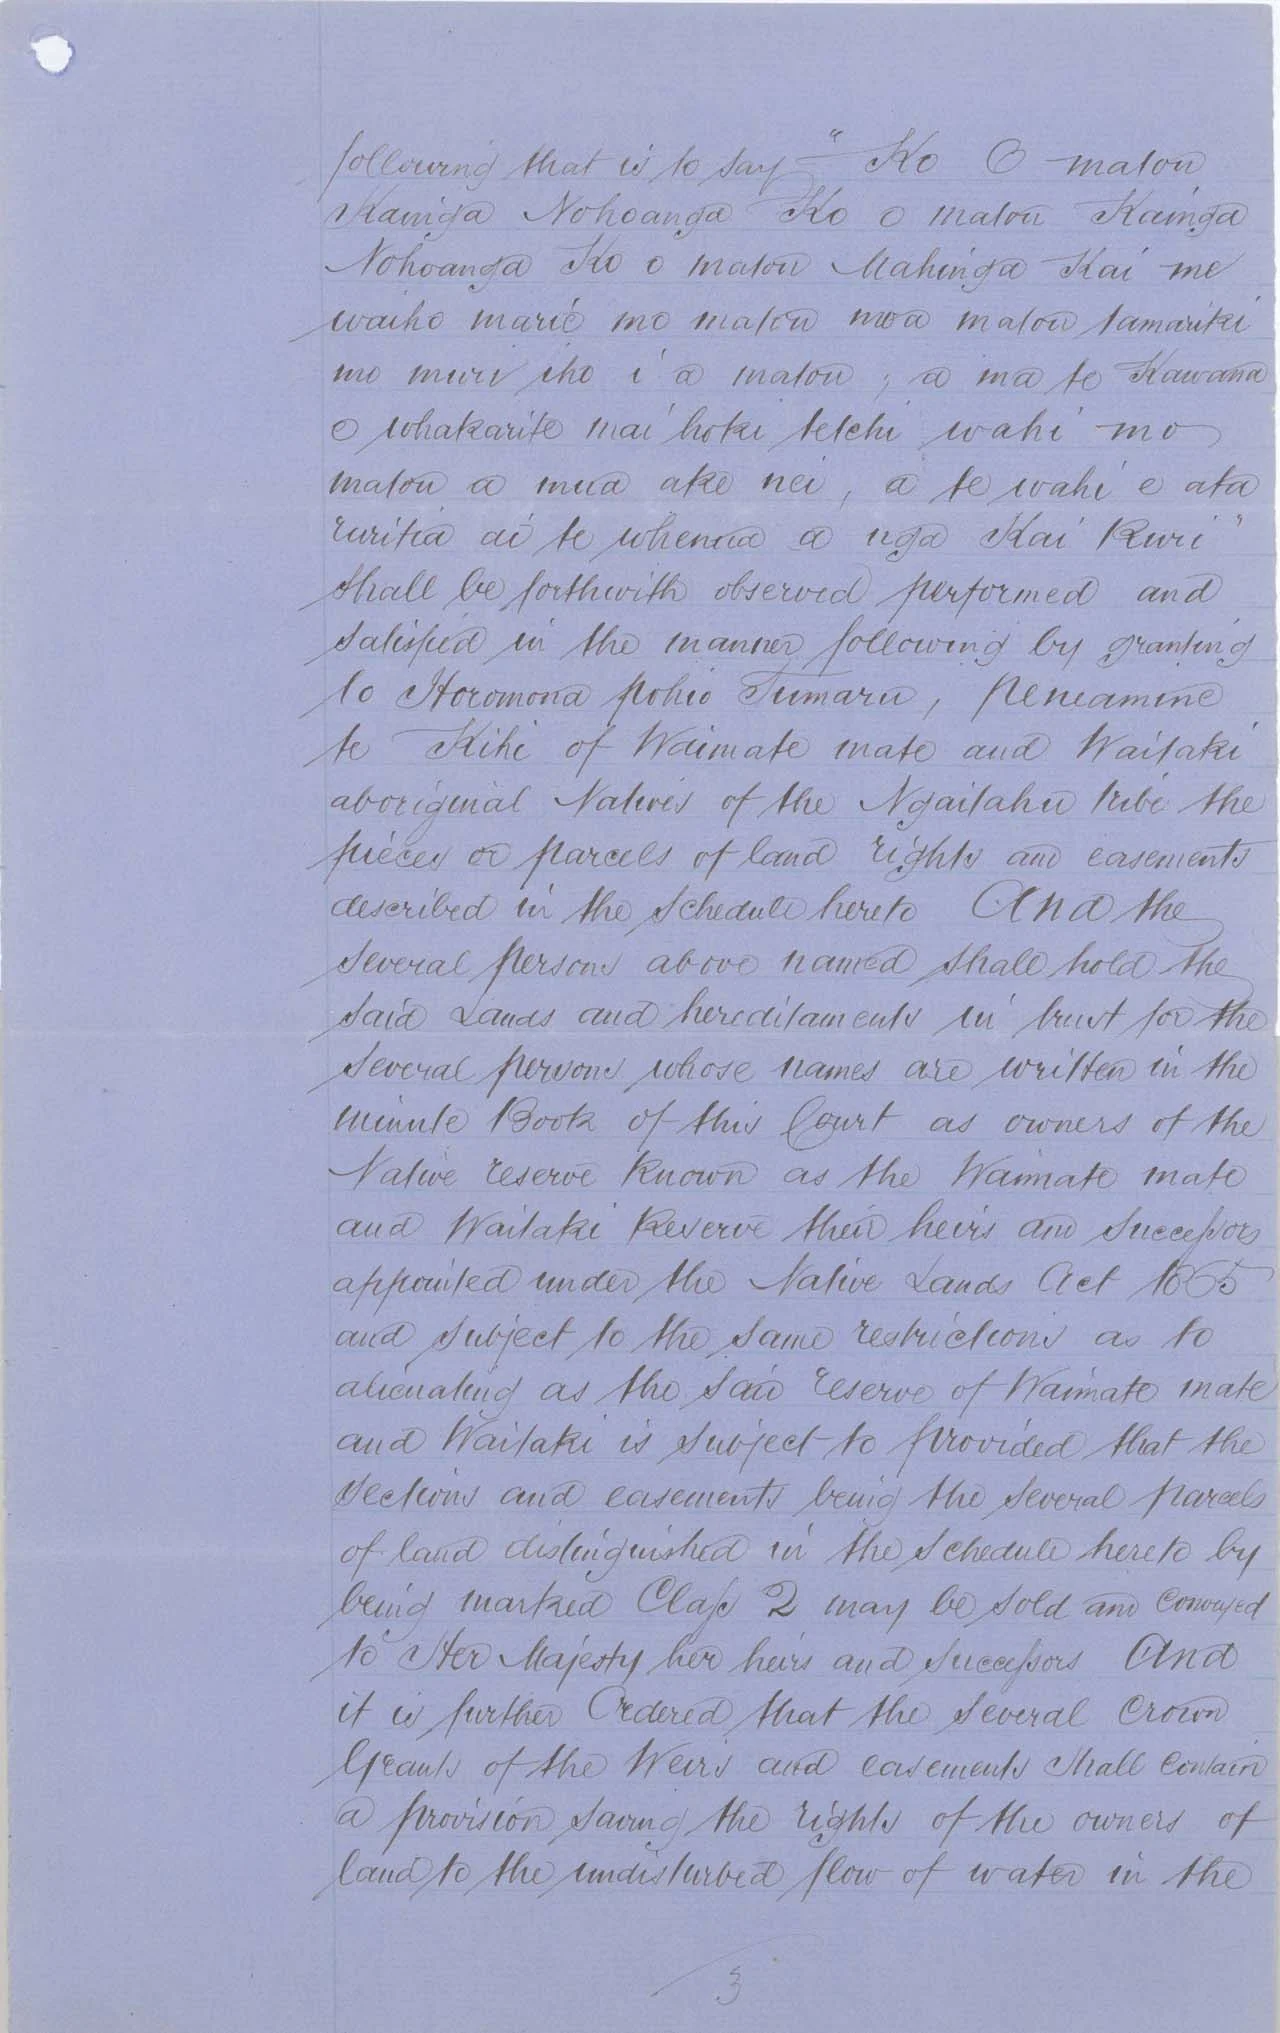 following that is to say "Ko O matou
Kainga Nohoanga Ko o matou Kainga
Nohoanga Ko o matou Mahinga Kai me
waiho marie mo matou moa matou tamariki
mo muri iho i a matou ; a ma te Kawana
e whakarite mai hoki tetehi wahi mo
matou a mua ake nei, a te wahi e ata
ruritia ai te whenua a nga Kai Ruri"
shall be forthwith observed performed and
satisfied in the manner following by granting
to Horomona pohio Tumaru, peneamine
te Kihi of Waimate mate and Waitaki
aboriginal Natives of the Ngaitahu tribe the
pieces or parcels of land rights and easements
described in the schedule hereto And the
several persons above named shall hold the
said Lands and hereditaments in trust for the
several persons whose names are written in the
minute Book of this Court as owners of the
Native reserve Known as the Waimate mate
and Waitaki Reserve their heirs and successors
appointed under the Native Lands Act 1865
and subject to the same restrictions as to
alienating as the said reserve of Waimate mate
and Waitaki is subject to provided that the
sections and easements being the several parcels
of land distinguished in the schedule hereto by
being marked Class 2 may be sold and conveyed
to Her Majesty her heirs and successors And
it is further Ordered that the several Crown
Grants of the Weirs and easements shall contain
a provision saving the rights of the owners of
land to the undisturbed flow of water in the
3